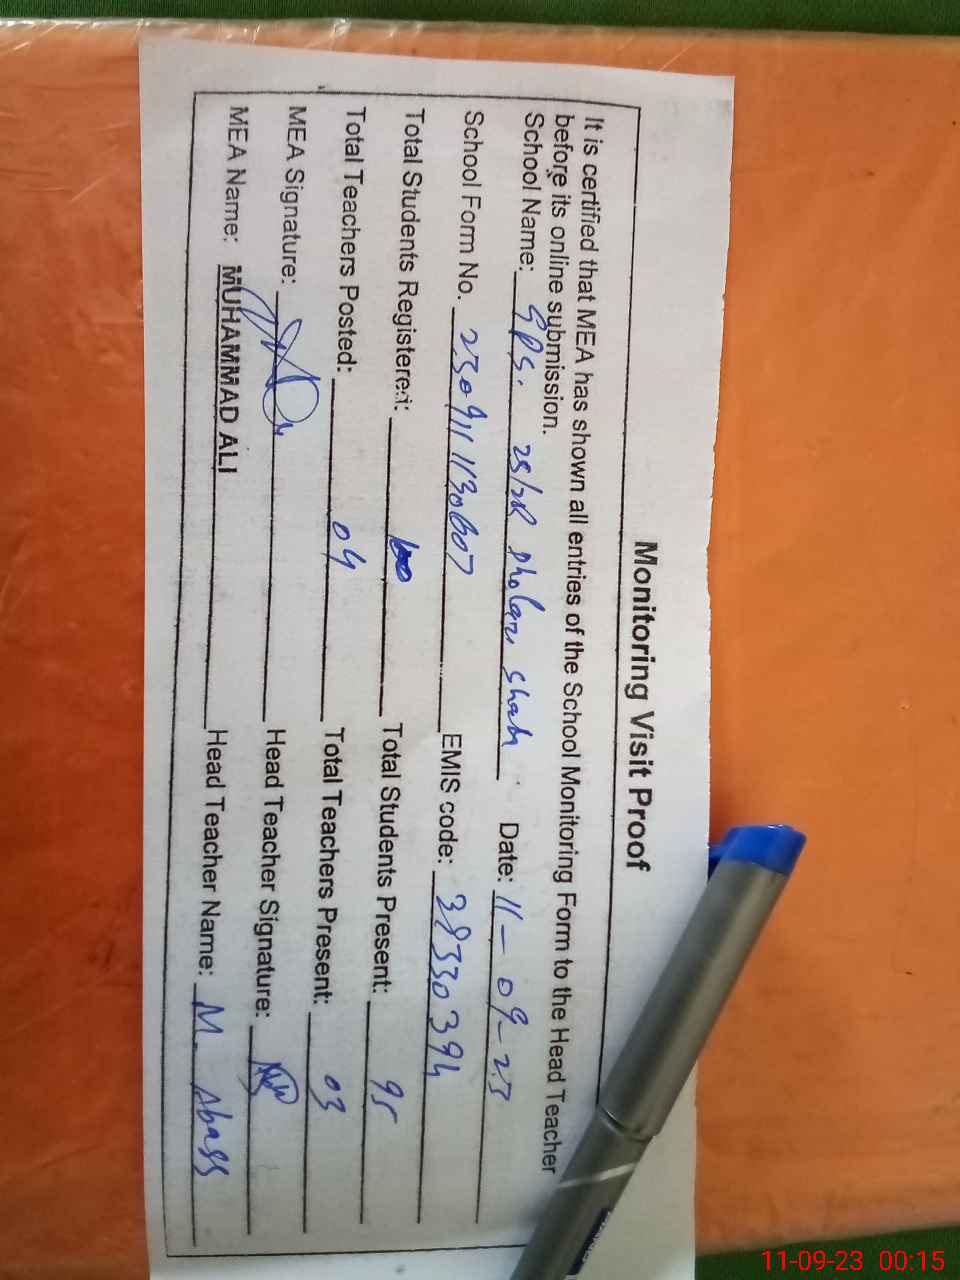 Monitoring Visit Proof
It is certified that MEA has shown all entries of the School Monitoring Form to the Head Teacher
before its online submission.
School Name: GPS. 25/2R Dholan Shah Date: 11-09-23
School Form No. 230911130607 EMIS code: 38330394
Total Students Registered: 100 Total Students Present: 95
Total Teachers Posted: 04 Total Teachers Present: 03
MEA Signature: Head Teacher Signature:
MEA Name: MUHAMMAD ALI Head Teacher Name: M. Abass
11-09-23 00:15